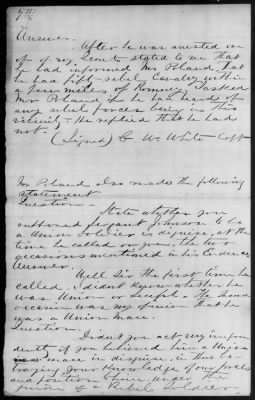 Answer.
After he was arrested one
of my Scouts stated to me that
he had informed Mr Poland that
he had fifty rebel Cavalry within
a few miles of Romney. I asked
Mr Poland if he had heard of
any rebel forces being in this
vicinity. He replied that he had
not.
(Signed) C. W. White Capt
Mr Poland also made the following
statement
Question.
State whether you
suffered Sergeant Johnson to be a
Union Soldier in disguise, at the
time he called on you, the two
occasions mentioned in his Evidence.
Answer.
Well Sir the first time he
called. I didnt know whether he
was Union or Secesh. The second
occasion was my opinion that he
was a Union man.
Question.
Didnt you act very
if you believed him a Union
man in disguise, in thus be-
traying your knowledge of our forces
and position here, under the
guise of a Rebel Soldier